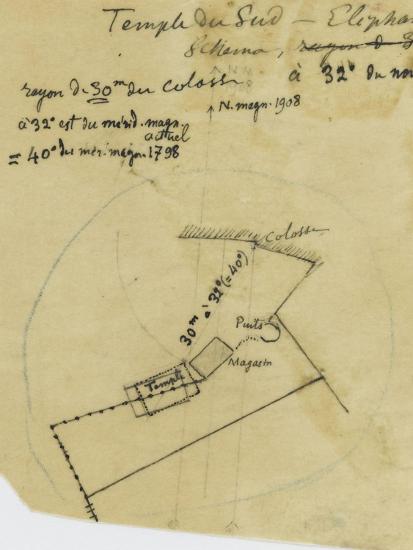 Temple du Sud —
Schema, à 32° du
rayon de 30m du Colosse
↑ N. magn. 1908
à 32° est du mérid. magn.
actuel
= 40° du mér. magn. 1798
Colosse
30m à 32° (= 40°)
Puits
Magasin
Temple